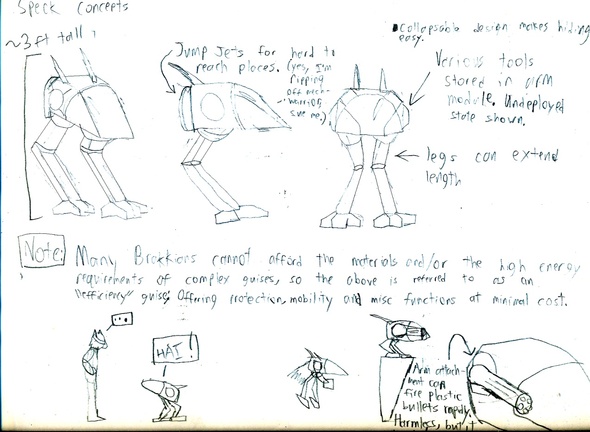 Speck Concepts
~3 ft tall
Jump Jets for hard to
reach places. (yes, I'm
ripping
off mech-
warrior,
sue me.)
Collapsable design makes hiding
easy.
Various tools
stored in arm
module. Undeployed
state shown.
legs can extend
length
Note: Many Brakkians cannot afford the materials and/or the high energy
requirements of complex guises, so the above is referred to as an
"efficiency" guise, Offering protection, mobility and misc functions at minimal cost.
...
HAI!
Arm attach-
ment can
fire plastic
bullets rapidly.
Harmless, but it